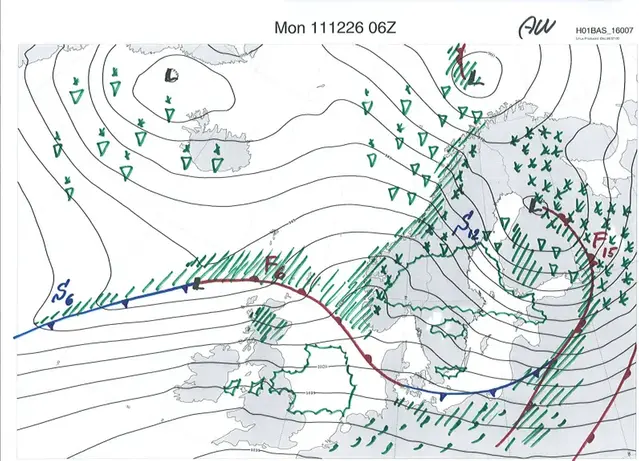 Mon 111226 06Z
AW
H01BAS_16007
L
L
L
S12
F15
F6
L
S6